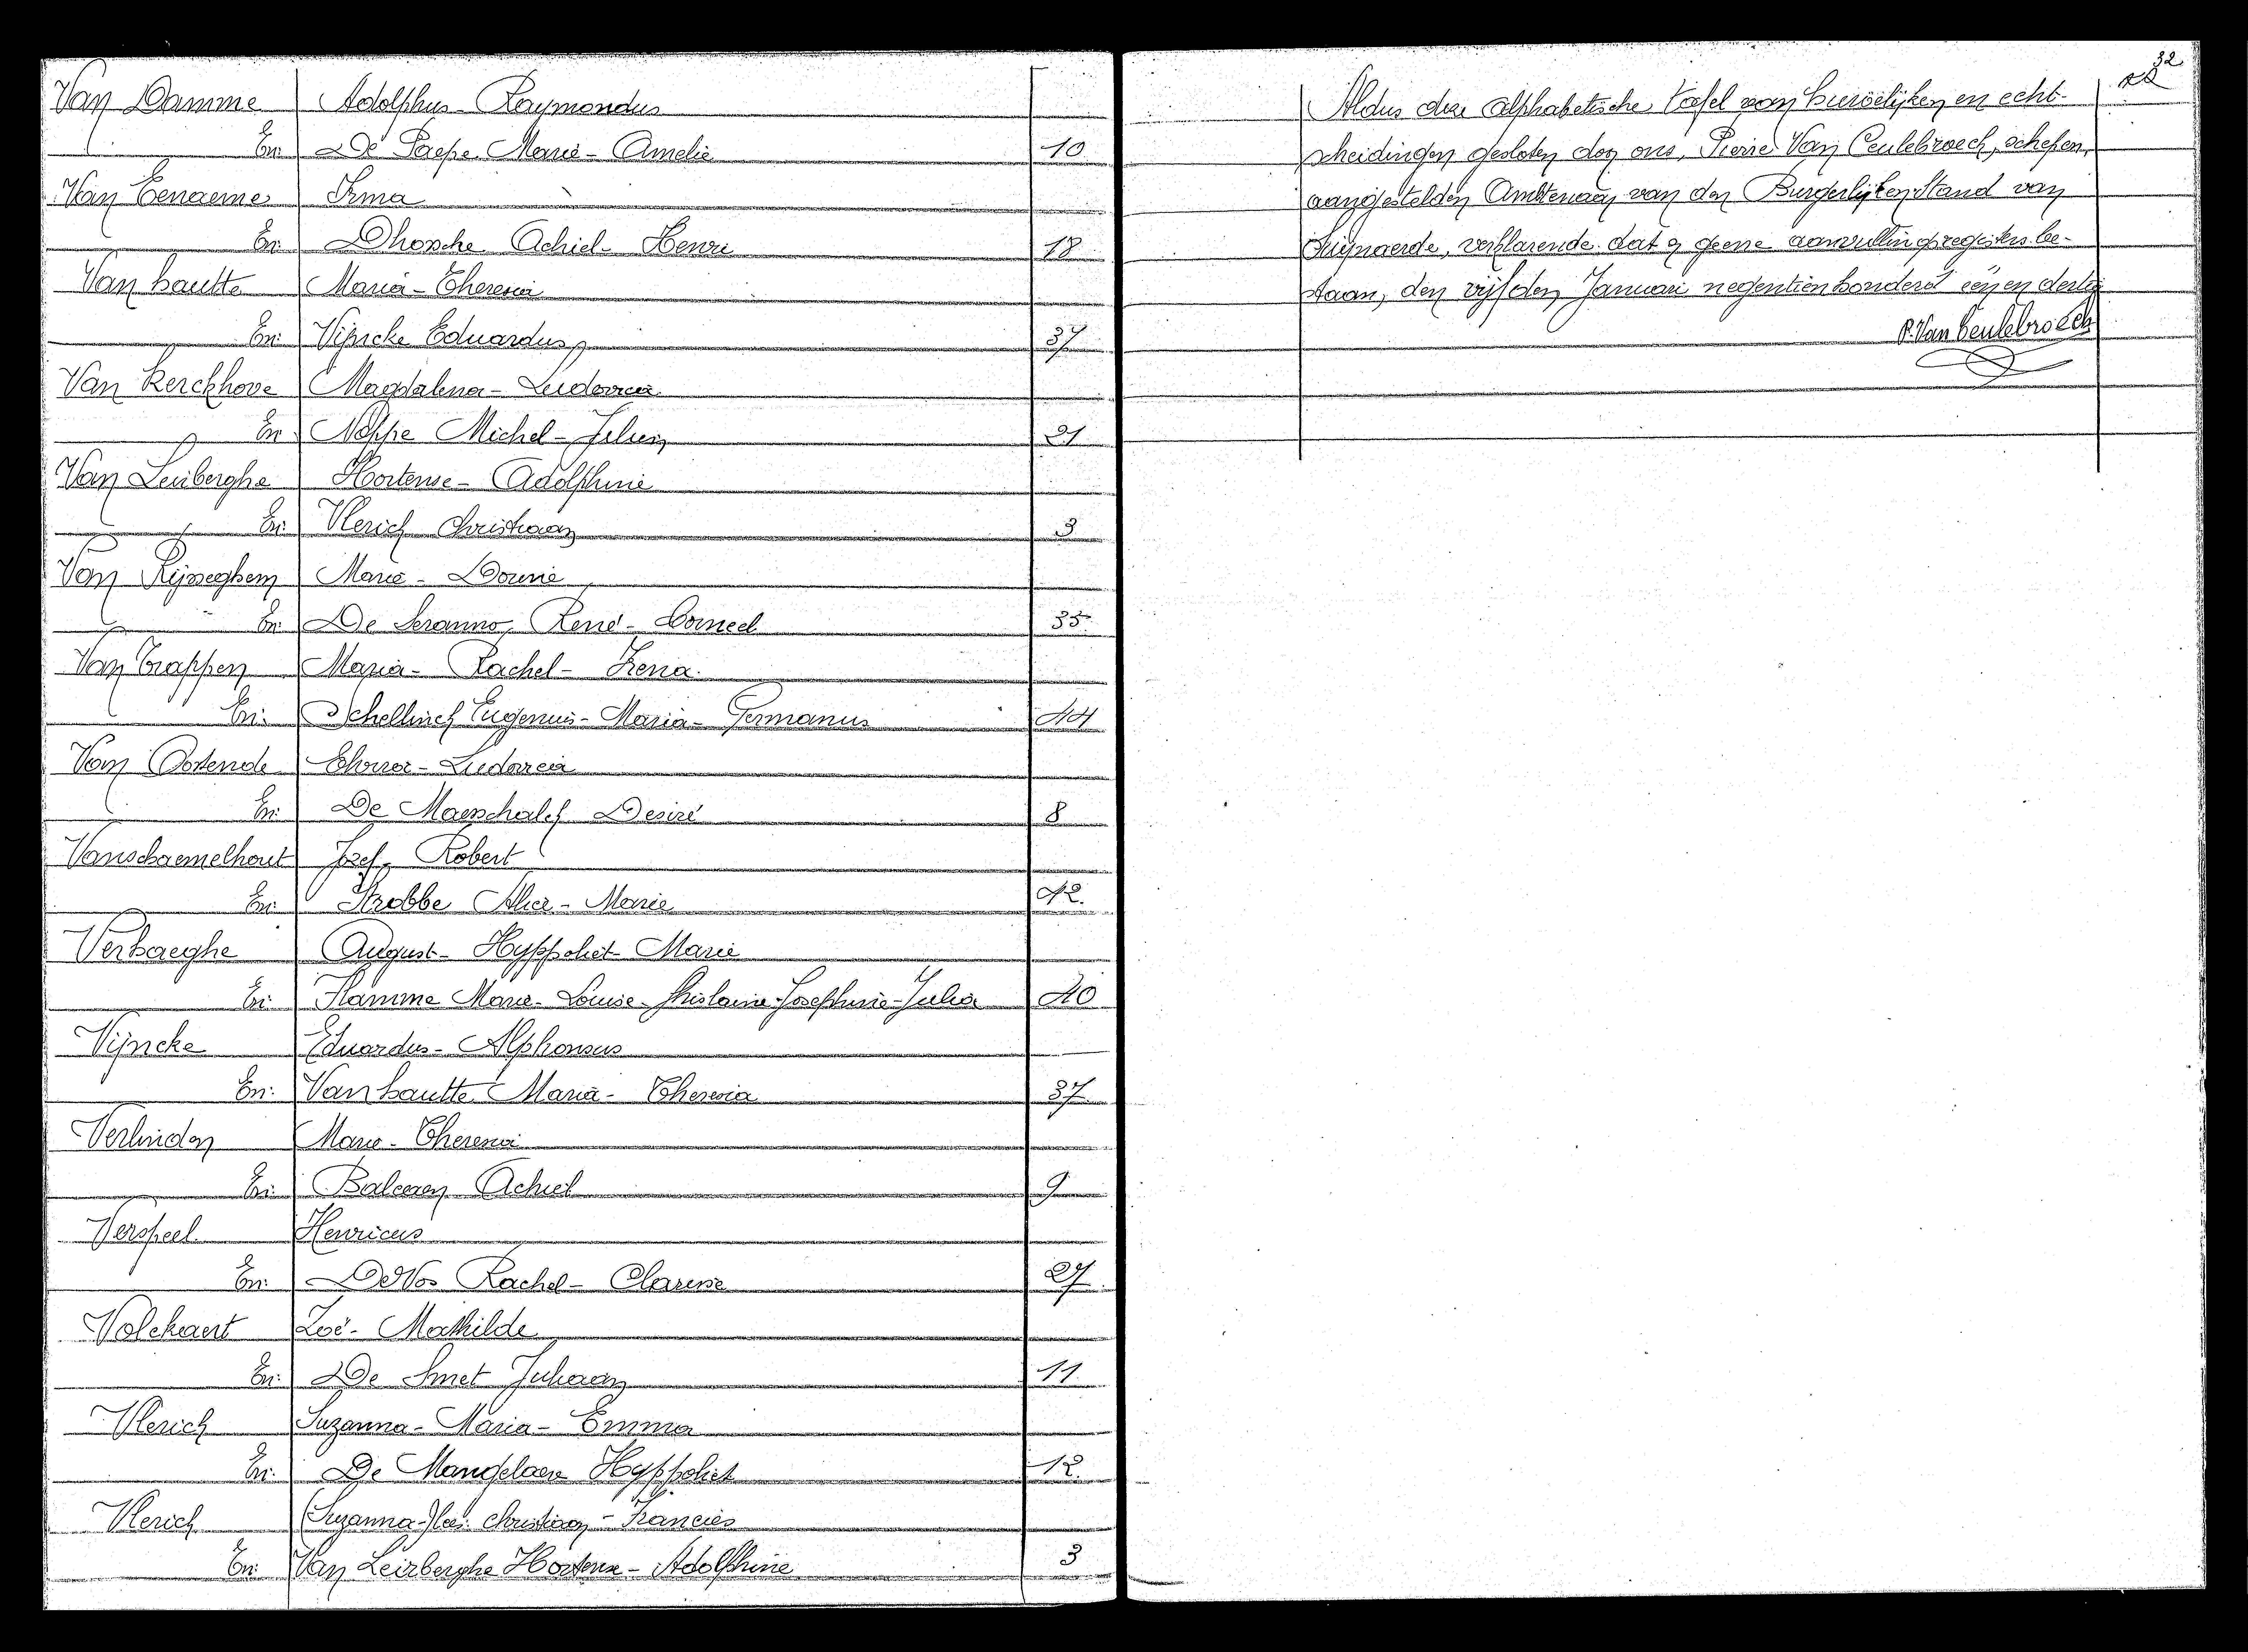 Van Damme Adolphus - Raymondus
En: De Paepe Marie - Amelie 10
Van Eenaeme Irma
En: Dhossche Achiel - Henri 18
Vanhautte Maria - Theresia
En: Vijncke Eduardus 37
Van Kerckhove Magdalena - Ludovica
En: Noppe Michel - Julien 21
Van Leirberghe Hortense - Adolphine
En: Vlerick Christiaan 3
Van Rijsseghem Marie -
En: De Seranno René - Corneel 35
Van Trappen Maria - Rachel - Irena
En: Schellinck Eugenius - Maria - Germanus 44
Van Oostende - Ludovica
En: De Maeschalck Desiré 8
Vanschaemelhout Jozef - Robert
En: Strobbe Alice - Marie 42.
Verhaeghe August - Hyppoliet - Marie
En: Flamme Marie - Louise - Ghislaine - Josephine - Julia 40
Vijncke Eduardus - Alphonsus
En: Vanhautte Maria - Theresia 37
Verlinden Marie - Theresia
En: Balcaen Achiel 9
Verspeel Henricus
En: De Vos Rachel - Clarisse 27
Volckaert Zoé - Mathilde
En: De Smet Juliaan 11
Vlerick Suzanna - Maria - Emma
En: De Mangelaere Hyppoliet 12.
Vlerick (Suzanna-) lees: Christiaan - Francies
En: Van Leirberghe Hortense - Adolphine 3
32
Aldus deze alphabetische tafel van huwelijken en echt-
scheidingen gesloten door ons, Pierre Van Ceulebroeck, schepen,
aangestelden Ambtenaar van den Burgerlijken Stand van
Zwijnaerde, verklarende dat er geene aanvullingsregisters be-
staan, den vijfden Januari negentienhonderd een en dertig
P. Van Ceulebroeck